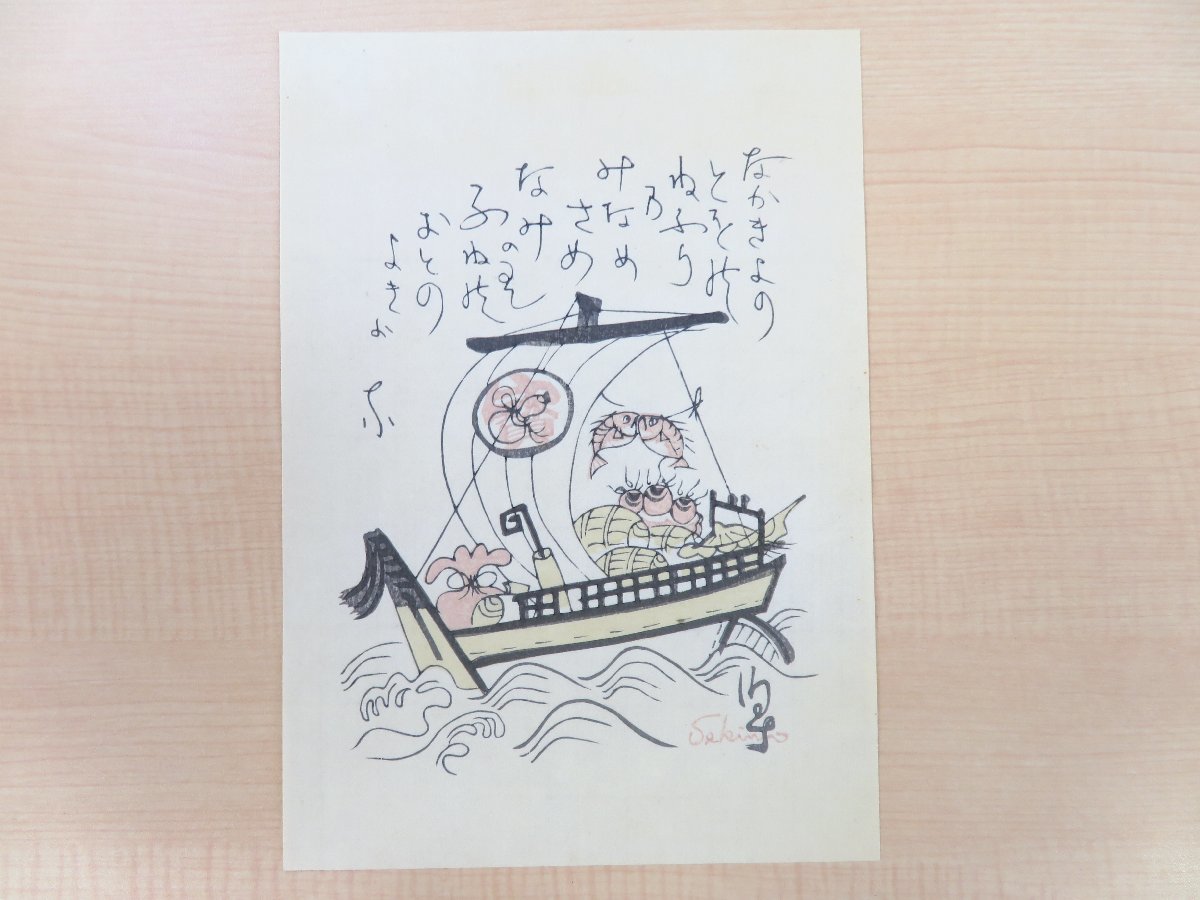 なかきよの
とをの
ねふり
乃
みなめ
さめ
なみのり
ふねの
おとの
よきか
な
Sekino